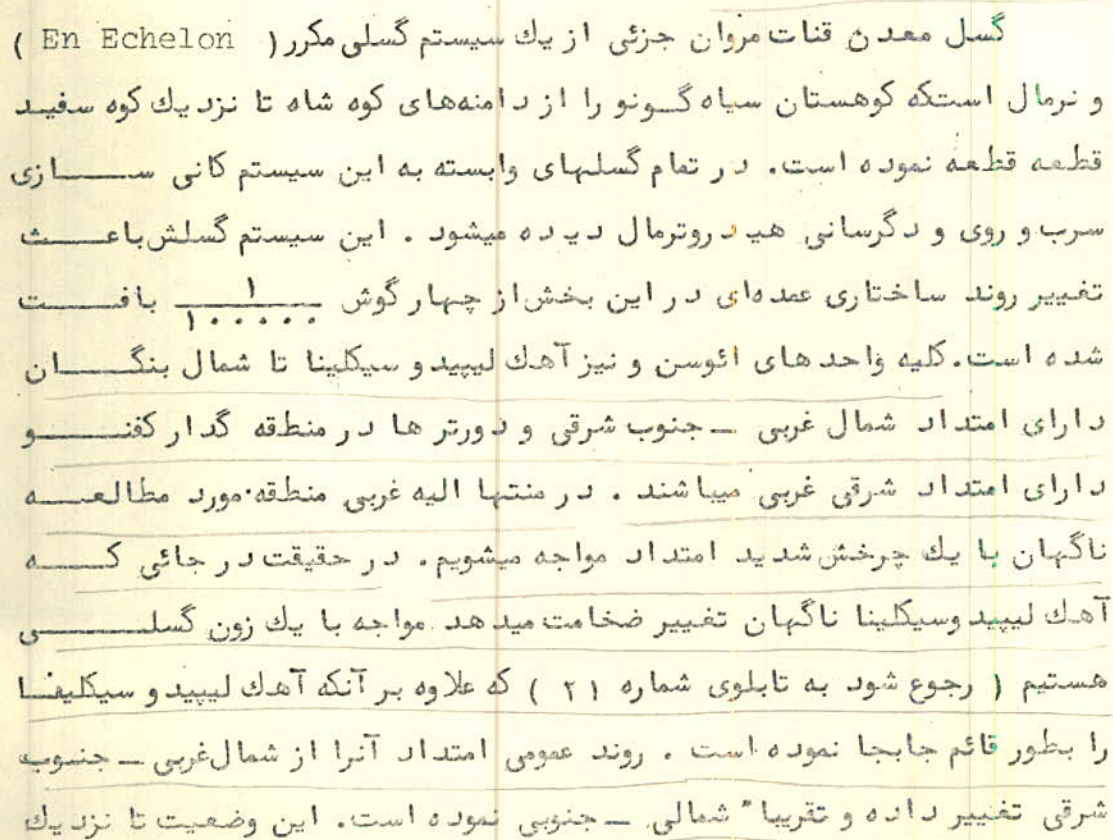 گسل معدن قنات مروان جزئی از یك سیستم گسلی مکرر ( En Echelon )
و نرمال استکه کوهستان سیاه گونو را از دامنه‌های کوه شاه تا نزدیك کوه سفید
قطعه قطعه نموده است. در تمام گسلهای وابسته به این سیستم کانی سازی
سرب و روی و دگرسانی هیدروترمال دیده میشود . این سیستم گسلش باعث
تغییر روند ساختاری عمده‌ای در این بخش از چهار گوش ۱/۱۰۰۰۰۰ بافت
شده است. کلیه واحد های ائوسن و نیز آهك لیپیدو سیکلینا تا شمال بنگان
دارای امتداد شمال غربی ــ جنوب شرقی و دورتر ها در منطقه گدار کفنو
دارای امتداد شرقی غربی میباشند . در منتها الیه غربی منطقه مورد مطالعه
ناگهان با یك چرخش شدید امتداد مواجه میشویم. در حقیقت در جائی که
آهك لیپید وسیکلینا ناگهان تغییر ضخامت میدهد مواجه با یك زون گسلی
هستیم ( رجوع شود به تابلوی شماره ۲۱ ) که علاوه بر آنکه آهك لیپیدو سیکلیفا
را بطور قائم جابجا نموده است . روند عمومی امتداد آنرا از شمال غربی ــ جنوب
شرقی تغییر داده و تقریبا" شمالی ــ جنوبی نموده است. این وضعیت تا نزدیك